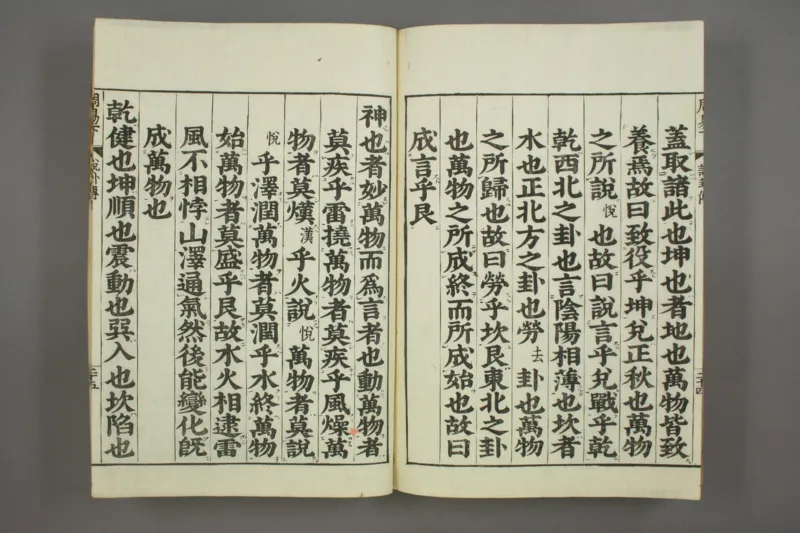 蓋取諸此也坤也者地也萬物皆致
養焉故曰致役乎坤兌正秋也萬物
之所說悅也故曰說言乎兌戰乎乾
乾西北之卦也言陰陽相薄也坎者
水也正北方之卦也勞去卦也萬物
之所歸也故曰勞乎坎艮東北之卦
也萬物之所成終而所成始也故曰
成言乎艮
神也者妙萬物而爲言者也動萬物者
莫疾乎雷撓萬物者莫疾乎風燥萬
物者莫熯漢乎火說悅萬物者莫說
悅乎澤潤萬物者莫潤乎水終萬物
始萬物者莫盛乎艮故水火相逮雷
風不相悖山澤通氣然後能變化旣
成萬物也
乾健也坤順也震動也巽入也坎陷也
周易下
說卦傳
二十四
二十五